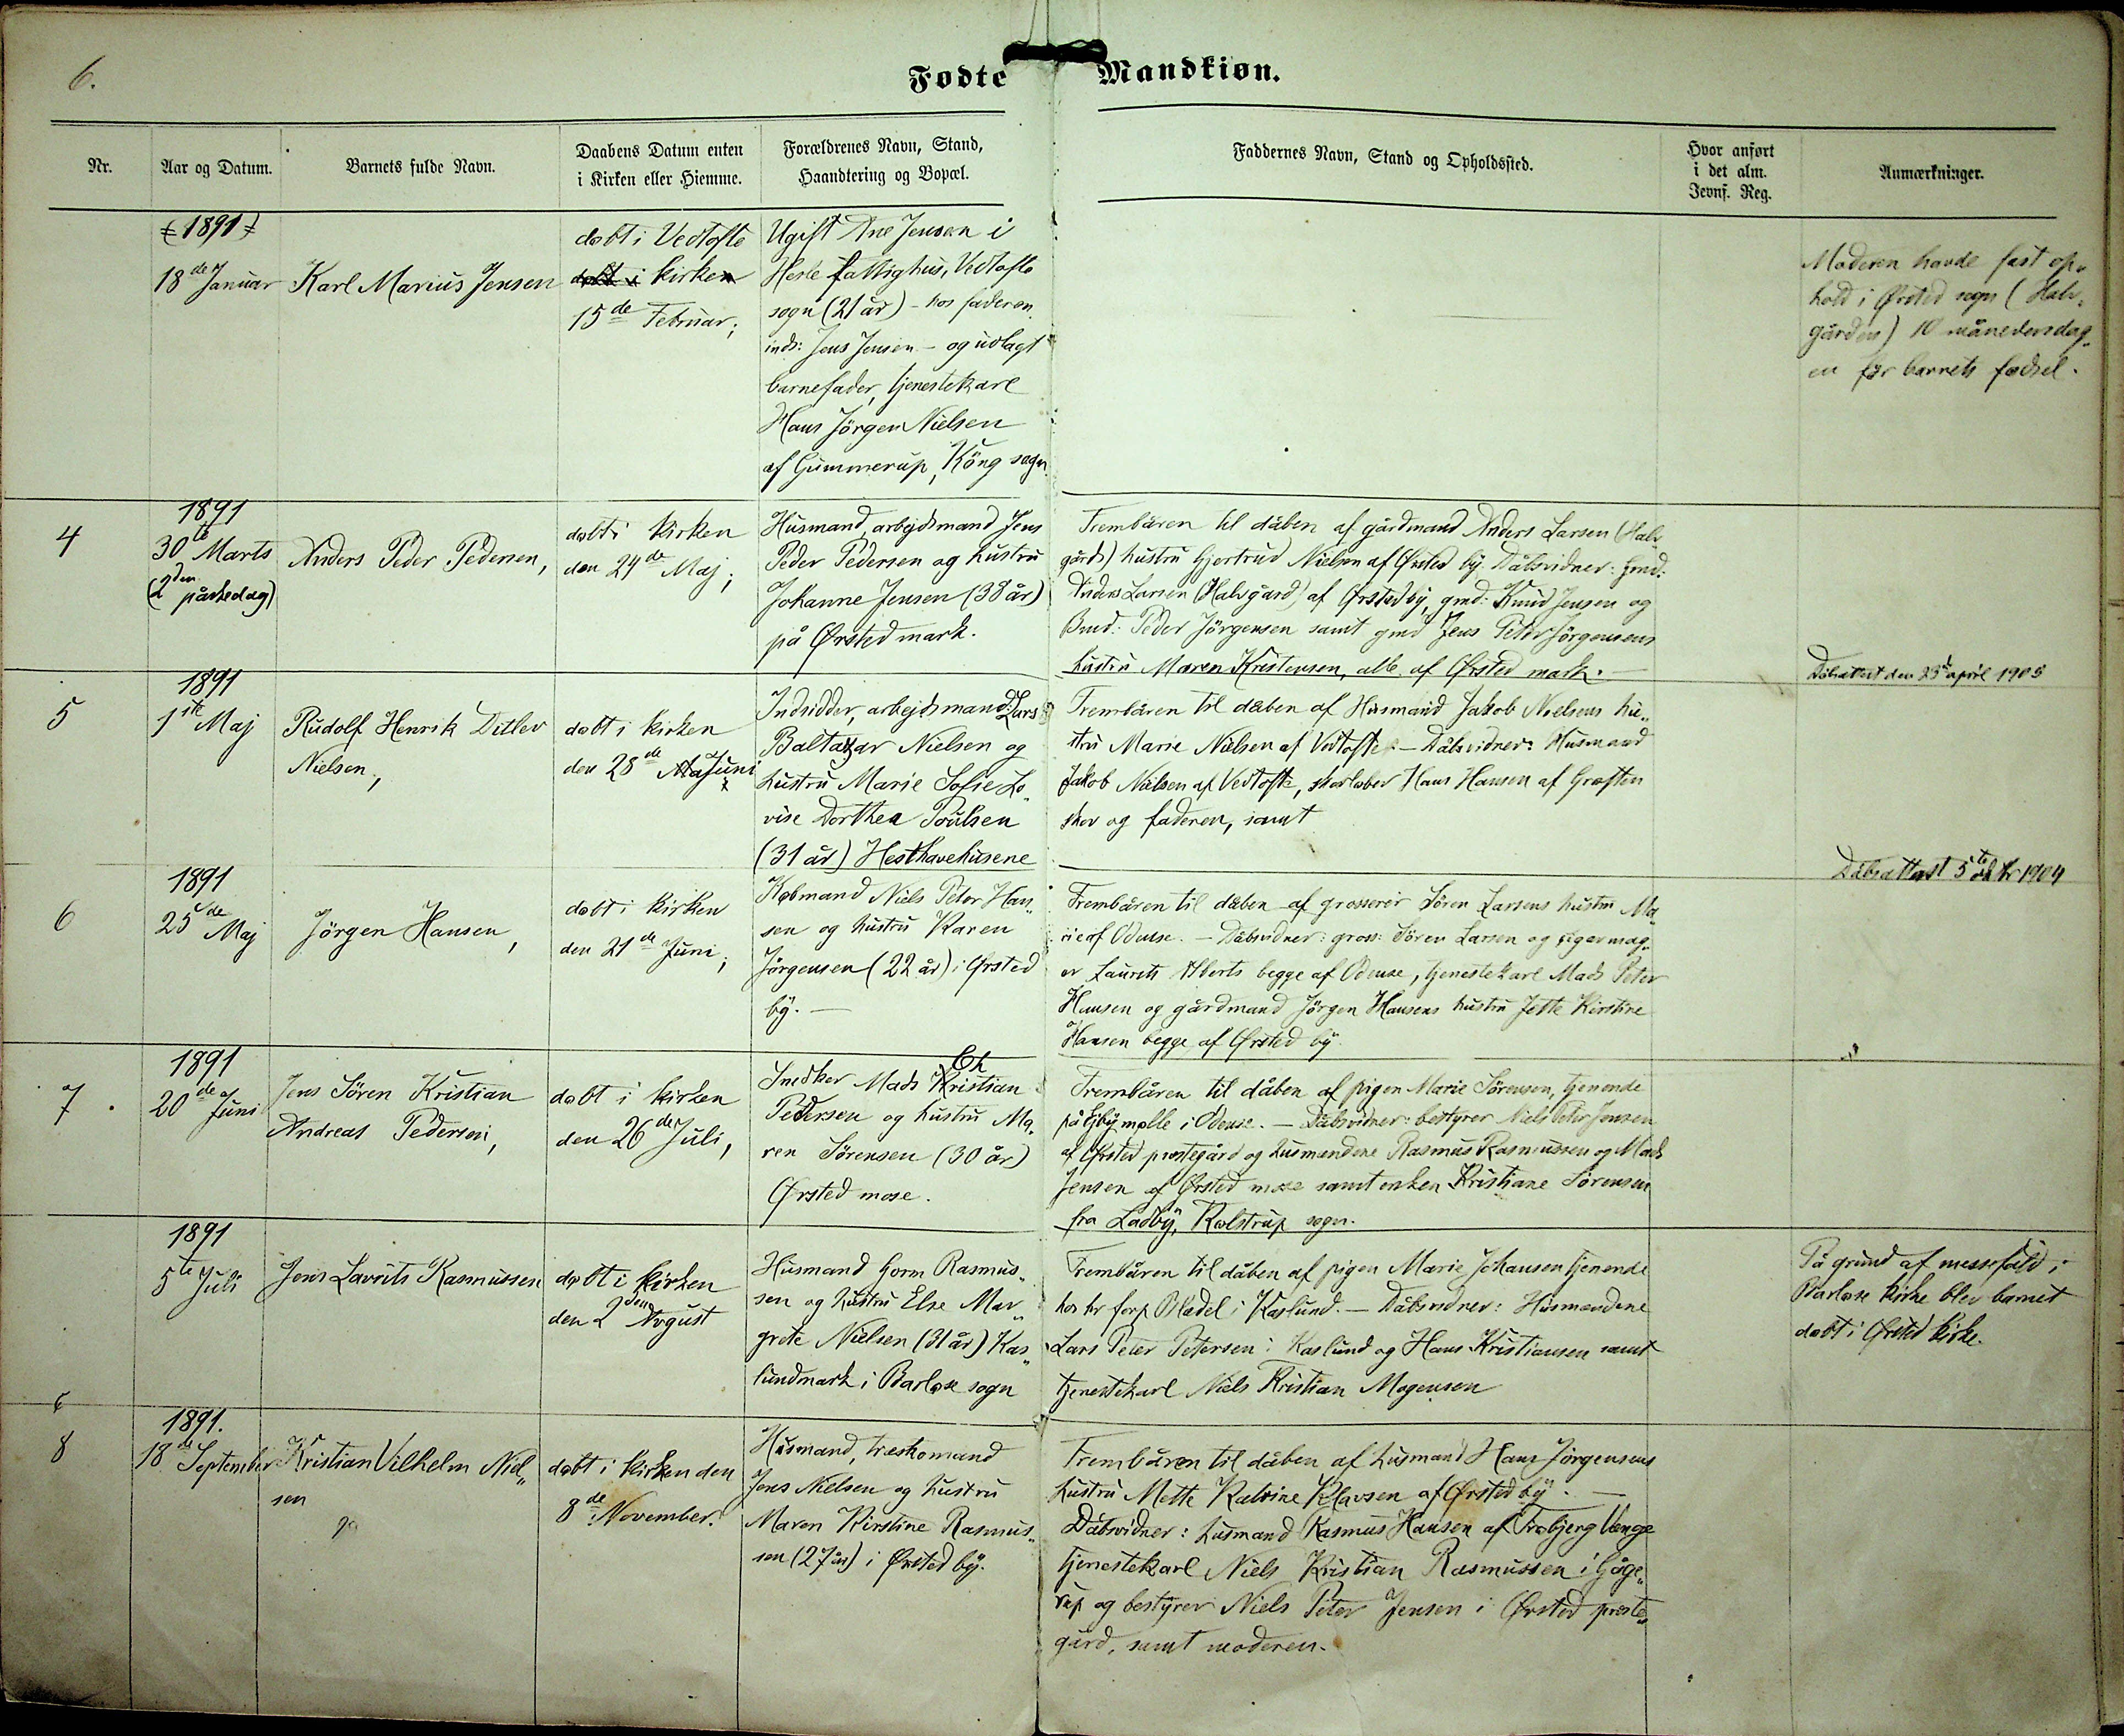 6.
Fødte Mandkiøn.
Nr.
Aar og Datum.
Barnets fulde Navn.
Daabens Datum enten
i Kirken eller Hiemme.
Forældrenes Navn, Stand,
Haandtering og Bopæl.
Faddernes Navn, Stand og Opholdssted.
Hvor anført
i det alm.
Jevnf. Reg.
Anmærkninger.
1891
18de Januar
Karl Marius Jensen
døbt i Vedtofte
døbt i kirken
15de Februar;
Ugift Ane Jensen i
Hesle fattighus, Vedtofte
sogn (21 år) - hos faderen
inds: Jens Jensen - og udlagt
barnefader, tjenestekarl
Hans Jörgen Nielsen
af Gummerup, Köng sogn.
Moderen havde fast op„
hold i Ørsted sogn (Halv„
gården) 10 månedersdag„
en før barnets fødsel.
4
1891
30te Marts
(2den påskedag)
Anders Peder Pedersen,
døbt i kirken
den 24de Maj;
Husmand, arbejdsmand Jens
Peder Pedersen og hustru
Johanne Jensen (38 år)
på Ørsted mark.
Frembåren til dåben af gårdmand Anders Larsen (Halv„
gårds) hustru Hjertrud Nielsen af Ørsted by. Dåbsvidner: gmd:
Anders Larsen (Halvgård) af Ørsted by, gmd: Knud Jensen og
Bmd: Peder Jörgensen samt gmd Jens Peter Jörgensens
hustru Maren Kristensen, alle af Ørsted mark. -
Dåbsattest den 25d april 1905
5
1891
1ste Maj
Rudolf Henrik Ditlev
Nielsen,
døbt i kirken
den 28de Juni
Indsidder, arbejdsmand Lars
Baltazar Nielsen og
hustru Marie Sofie Lo„
vise Dorthea Poulsen
(31 år) Hesthavehusene
Frembåren til dåben af Husmand Jakob Nielsens hu„
stru Marie Nielsen af Vedtofte. - Dåbsvidner: Husmand
Jakob Nielsen af Vedtofte, skovløber Hans Hansen af Græften
skov og faderen, samt
Dåbsattest 5te oktbr 1904
6
1891
25de Maj
Jörgen Hansen,
døbt i kirken
den 21de Juni;
Købmand Niels Peter Han„
sen og hustru Karen
Jörgensen (22 år) i Ørsted
by. -
Frembåren til dåben af grosserer Sören Larsens hustru Ma„
rie af Odense. - Dåbsvidner: gross: Sören Larsen og cigarmag„
er Laurits Alberts begge af Odense, tjenestekarl Mads Peter
Hansen og gårdmand Jörgen Hansens hustru Jette Kirstine
Hansen begge af Ørsted by.
7
1891
20de Juni
Jens Sören Kristian
Andreas Pedersen,
døbt i kirken
den 26de Juli,
Ch
Snedker Mads Kristian
Pedersen og hustru Ma„
ren Sörensen (30 år)
Ørsted mose.
Frembåren til dåben af pigen Marie Sörensen, tjenende
på Ejbymølle i Odense. - Dåbsvidner: bestyrer Niels Peter Jensen
af Ørsted præstegård og husmændene Rasmus Rasmussen og Mads
Jensen af Ørsted mose samt enken Kristiane Sörensen
fra Ladby, Rølstrup sogn.
1891
5te Juli
Jens Lavrits Rasmussen
døbt i kirken
den 2den Avgust
Husmand Gorm Rasmus„
sen og hustru Else Mar„
grete Nielsen (31 år) Kas„
lundmark i Barløse sogn
Frembåren til dåben af pigen Marie Johansen tjenende
hos hr forp. Bladel i Kaslund. - Dåbsvidner: Husmændene
Lars Peter Petersen i Kaslund og Hans Kristiansen samt
tjenestekarl Niels Kristian Mogensen
På grund af messefald i
Barløse kirke blev barnet
døbt i Ørsted kirke.
8
1891.
18de September
Kristian Vilhelm Niel„
sen
døbt i kirken den
8de November.
Husmand, træskomand
Jens Nielsen og hustru
Maren Kirstine Rasmus„
sen (27 år) i Ørsted by.
Frembåren til dåben af husmand Hans Jörgensens
hustru Mette Katrine Klavsen af Ørsted by. -
Dåbsvidner: husmand Rasmus Hansen af Frøbjerg Vænge
tjenestekarl Niels Kristian Rasmussen i Gåge„
rup og bestyrer Niels Peter Jensen i Ørsted præste„
gård, samt moderen.